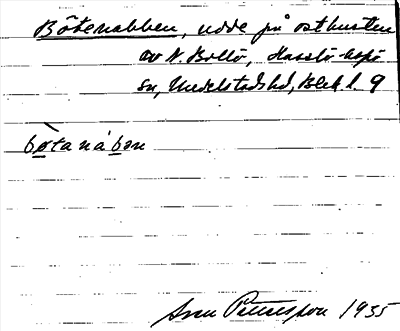 Bötenabben, udde på ostkusten
av N. Bollö, Hasslö-Aspö
sn, Medelstads hd, Blek. l. 9
bø̀tanábən
Sven Pettersson 1935